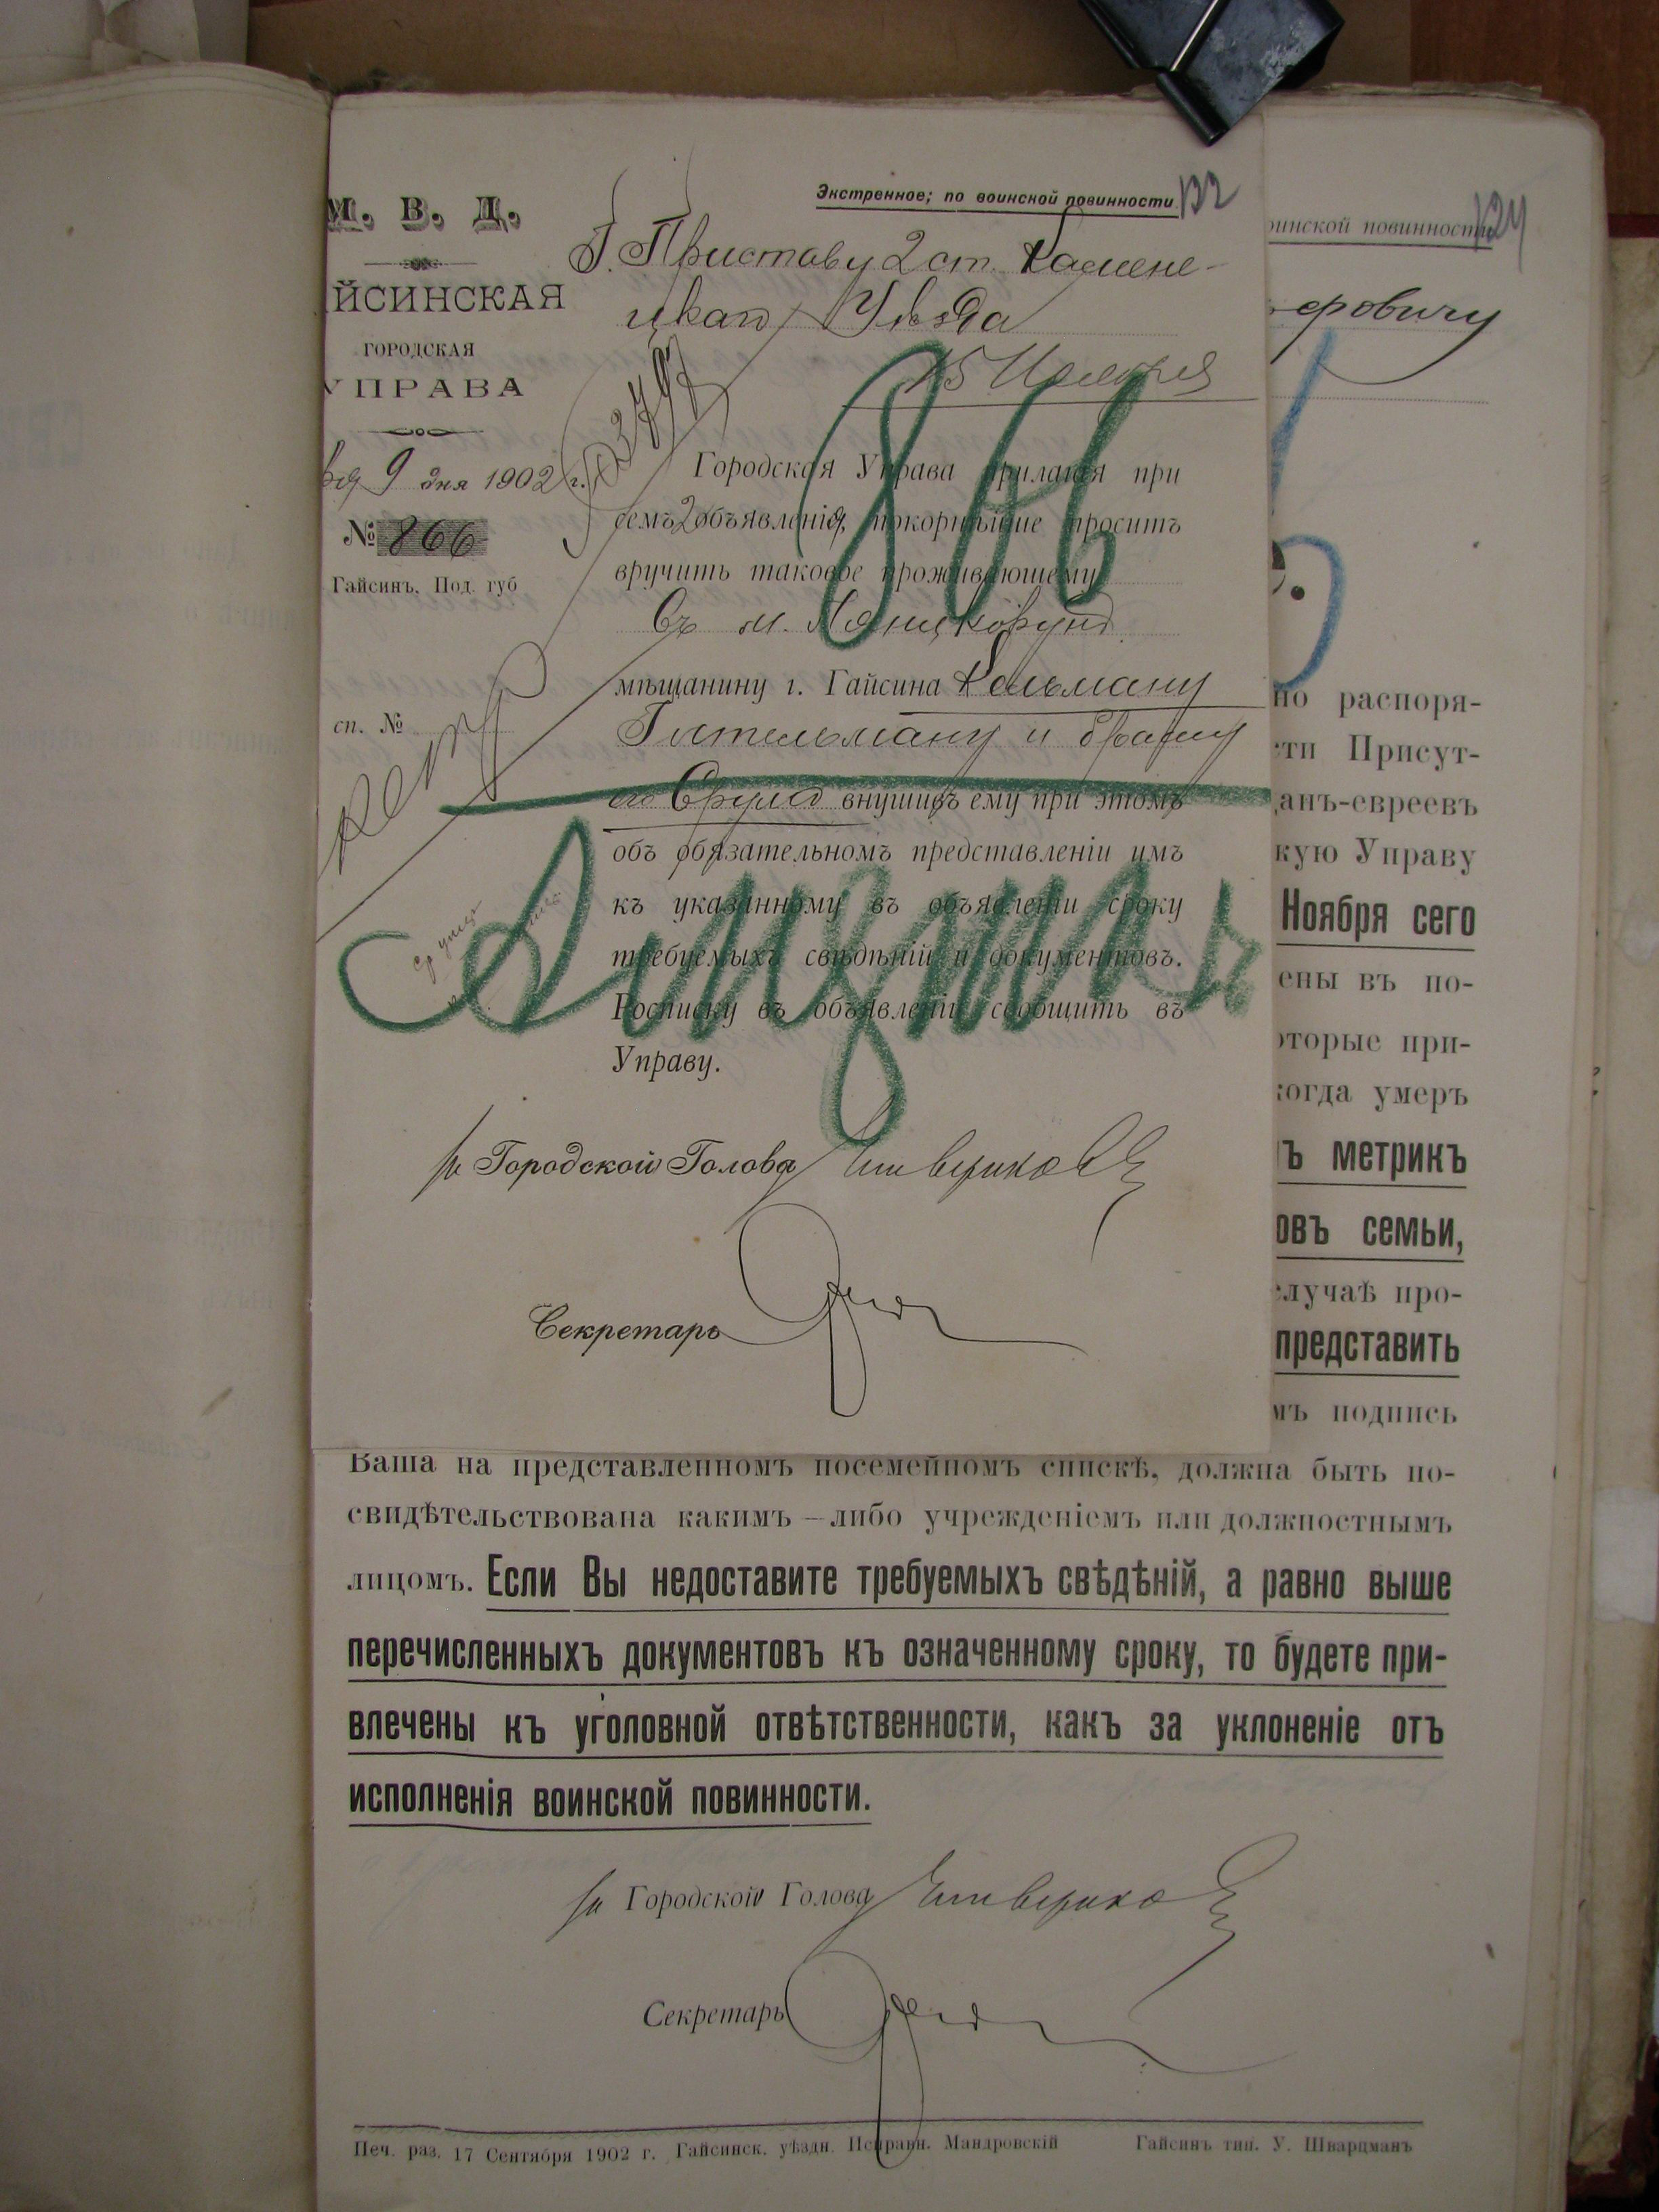 Экстренное; по воинской повинности 132
М. В. Д.
ЙСИНСКАЯ
ГОРОДСКАЯ
УПРАВА
9 дня 1902 г.
№ 866
Гайсинъ, Под. губ
сп. №
Г. Приставу 2 ст. Камене-
цкаго Уѣзда
15 Ноября
Городская Управа прилагая при
семъ 2 объявленія, покорнѣйше проситъ
вручить таковое проживающему
въ м. Лянцкорунѣ
мѣщанину г. Гайсина Кельману
Гительману и брату
его Сруль внушивъ ему при этомъ
объ обязательномъ представленіи имъ
къ указанному въ объявленіи сроку
требуемыхъ свѣдѣній и документовъ.
Росписку въ объявленіи сообщить въ
Управу.
Городской Голова
Секретарь
инской повинности 124
еровичу
но распоря-
сти Присут-
анъ-евреевъ
кую Управу
Ноября сего
ены въ по-
оторые при-
когда умеръ
ъ метрикъ
овъ семьи,
случаѣ про-
представить
мъ подпись
Ваша на представленномъ посемейномъ спискѣ, должна быть по-
свидѣтельствована какимъ–либо учрежденіемъ или должностнымъ
лицомъ. Если Вы недоставите требуемыхъ свѣдѣній, а равно выше
перечисленныхъ документовъ къ означенному сроку, то будете при-
влечены къ уголовной отвѣтственности, какъ за уклоненіе отъ
исполненія воинской повинности.
Городской Голова
Секретарь
Печ. раз. 17 Сентября 1902 г. Гайсинск. уѣздн. Исправн. Мандровскій Гайсинъ тип. У. Шварцманъ